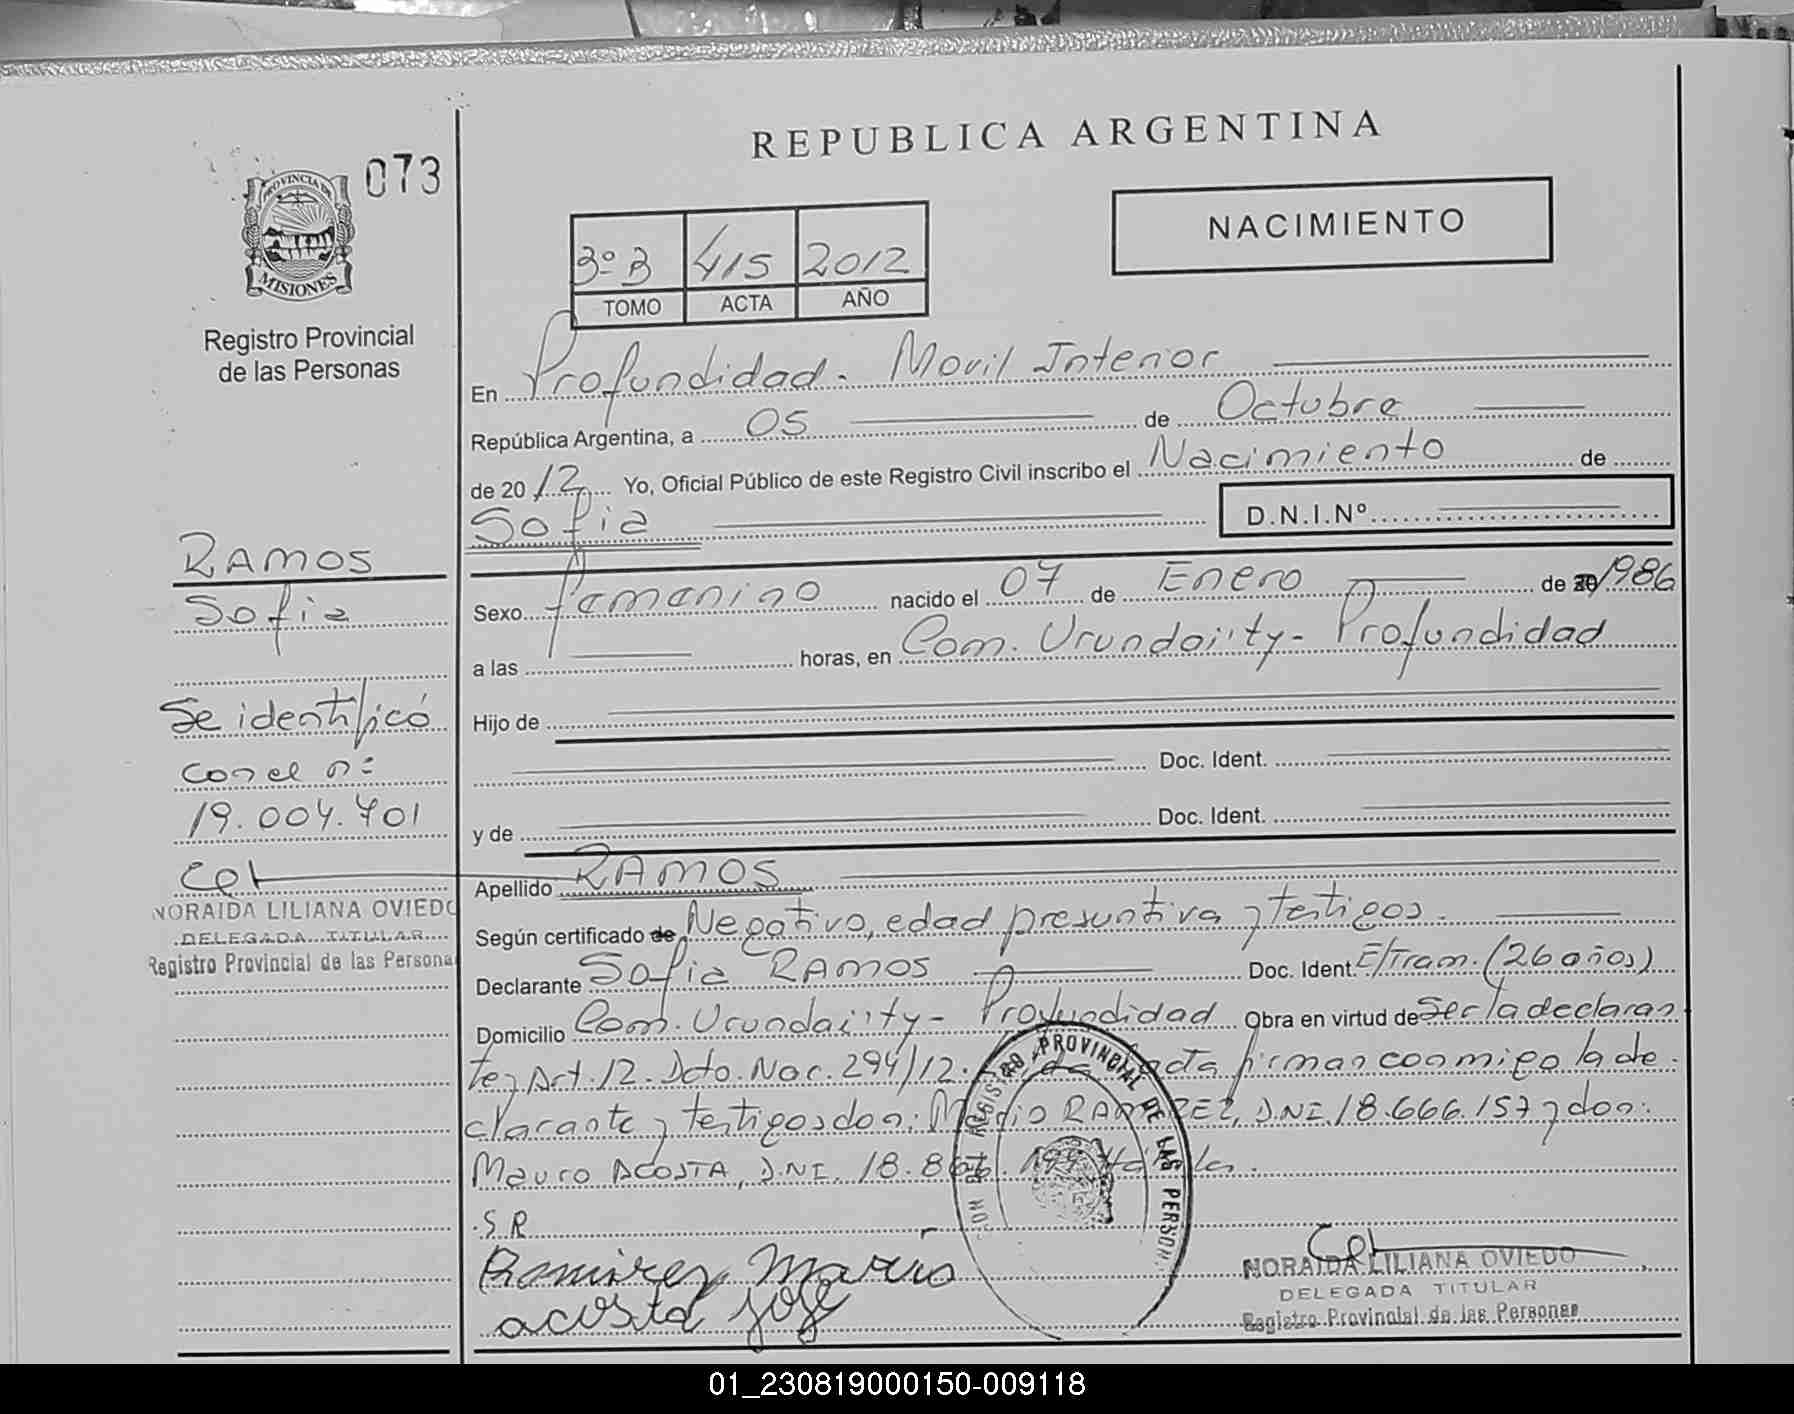 REPUBLICA ARGENTINA
073
PROVINCIA DE
MISIONES
Registro Provincial
de las Personas
NACIMIENTO
3º B 415 2012
TOMO ACTA AÑO
En Profundidad - Movil Interior
República Argentina, a 05 de Octubre
de 2012 Yo, Oficial Público de este Registro Civil inscribo el Nacimiento de
Sofia D.N.I.Nº
RAMOS
Sofia
Sexo femenino nacido el 07 de Enero de 1986
a las horas, en Com. Urundaiity - Profundidad
Se identificó
con el nº
19.004.701
Hijo de
Doc. Ident.
y de Doc. Ident.
NORAIDA LILIANA OVIEDO
DELEGADA TITULAR
Registro Provincial de las Persona
Apellido RAMOS
Según certificado de Negativo, edad presuntiva y testigos.
Declarante Sofia RAMOS Doc. Ident. E/Tram. (26 años)
Domicilio Com. Urundaiity - Profundidad Obra en virtud de Ser la declaran
te y Art. 12. Dcto. Nac. 294/12. acta firman conmigo la de-
clarante y testigos don: Mario RAMIREZ, D.N.I. 18.666.157 y don:
Mauro ACOSTA, D.N.I. 18.
S R
Ramirez Mario
acosta José
REGISTRO PROVINCIAL DE LAS PERSON
NORAIDA LILIANA OVIEDO
DELEGADA TITULAR
Registro Provincial de las Personas
01_230819000150-009118